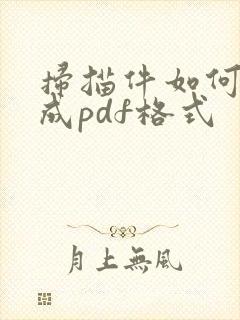 掃描件如何
成pdf格式
月上無風